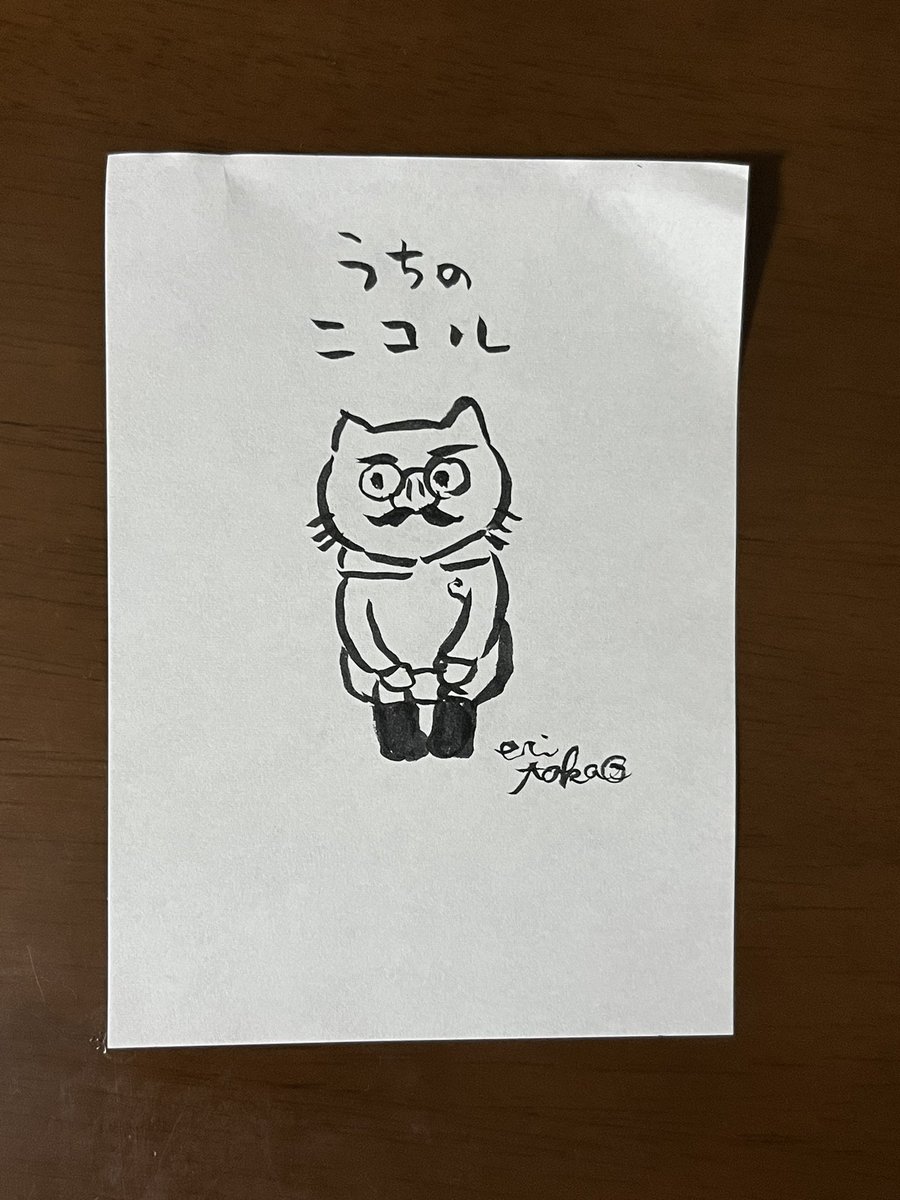 うちの
ニコル
eri
toka